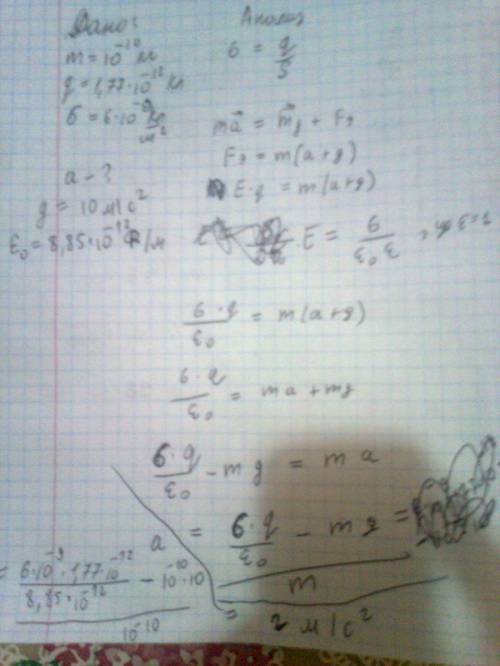 Дано:
m = 10⁻¹⁰ м
q = 1,77·10⁻¹² Кл
б = 6·10⁻⁹ Кл/м²
a - ?
g = 10 м/с²
ε₀ = 8,85·10⁻¹² Ф/м
Анализ
б = q/S
ma⃗ = m⃗g + Fэ
Fэ = m(a+g)
E·q = m(a+g)
E = б/ε₀ε
б·q/ε₀ = m(a+g)
б·q/ε₀ = ma+mg
б·q/ε₀ - mg = ma
a = (б·q/ε₀ - mg)/m =
= (6·10⁻⁹·1,77·10⁻¹²/8,85·10⁻¹² - 10⁻¹⁰·10)/10⁻¹⁰ = 2 м/с²